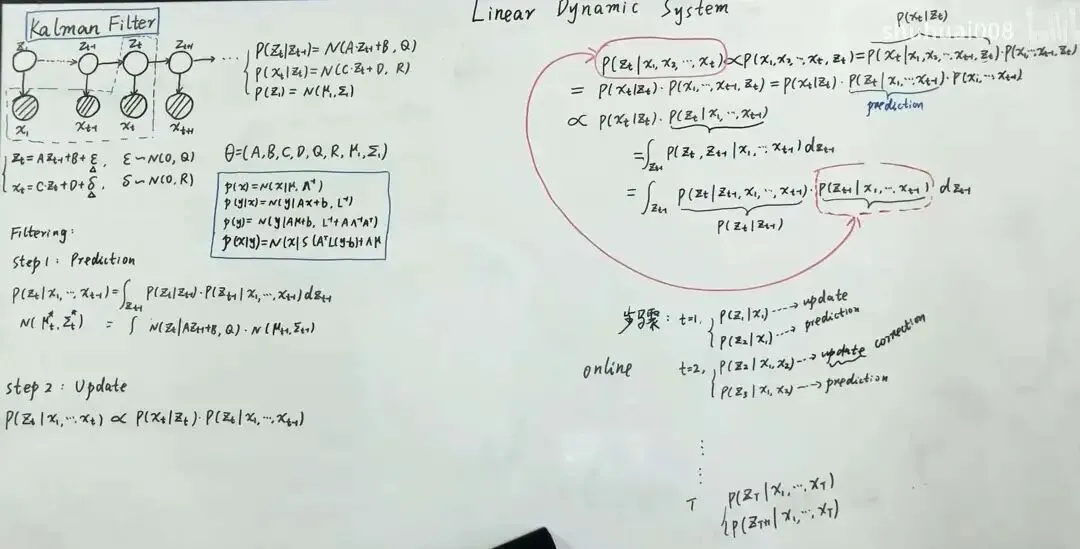 Linear Dynamic System
shuhuai008
Kalman Filter
z₁ z_{t-1} z_t z_{t+1}
x₁ x_{t-1} x_t x_{t+1}
P(z_t|z_{t-1}) = N(A·z_{t-1}+B, Q)
P(x_t|z_t) = N(C·z_t+D, R)
P(z₁) = N(μ₁, Σ₁)
z_t = A z_{t-1}+B+ε, ε ~ N(0, Q)
x_t = C·z_t+D+δ, δ ~ N(0, R)
θ = (A, B, C, D, Q, R, μ₁, Σ₁)
p(x) = N(x|μ, Λ⁻¹)
p(y|x) = N(y|Ax+b, L⁻¹)
p(y) = N(y|Aμ+b, L⁻¹+AΛ⁻¹Aᵀ)
p(x|y) = N(x|S(AᵀL(y-b)+Λμ
Filtering:
step 1: Prediction
P(z_t|x₁,…,x_{t-1}) = ∫_{z_{t-1}} P(z_t|z_{t-1})·P(z_{t-1}|x₁,…,x_{t-1}) dz_{t-1}
N(μ_t*, Σ_t*) = ∫ N(z_t|Az_{t-1}+B, Q)·N(μ_{t-1}, Σ_{t-1})
step 2: Update
P(z_t|x₁,…x_t) ∝ P(x_t|z_t)·P(z_t|x₁,…,x_{t-1})
P(x_t|z_t)
P(z_t|x₁,x₂,…,x_t) ∝ P(x₁,x₂,…x_t, z_t) = P(x_t|x₁,x₂,…x_{t-1}, z_t)·P(x₁,…x_{t-1}, z_t)
= P(x_t|z_t)·P(x₁,…,x_{t-1}, z_t) = P(x_t|z_t)·P(z_t|x₁,…x_{t-1})·P(x₁,…x_{t-1})
prediction
∝ P(x_t|z_t)·P(z_t|x₁,…,x_{t-1})
= ∫_{z_{t-1}} P(z_t, z_{t-1}|x₁,…x_{t-1}) dz_{t-1}
= ∫_{z_{t-1}} P(z_t|z_{t-1}, x₁,…,x_{t-1})·P(z_{t-1}|x₁,…,x_{t-1}) dz_{t-1}
P(z_t|z_{t-1})
步骤: t=1, P(z₁|x₁) ⇢ update
P(z₂|x₁) ⇢ prediction
online t=2, P(z₂|x₁,x₂) ⇢ update correction
P(z₃|x₁,x₂) ⇢ prediction
⋮
T P(z_T|x₁,…,x_T)
P(z_{T+1}|x₁,…,x_T)